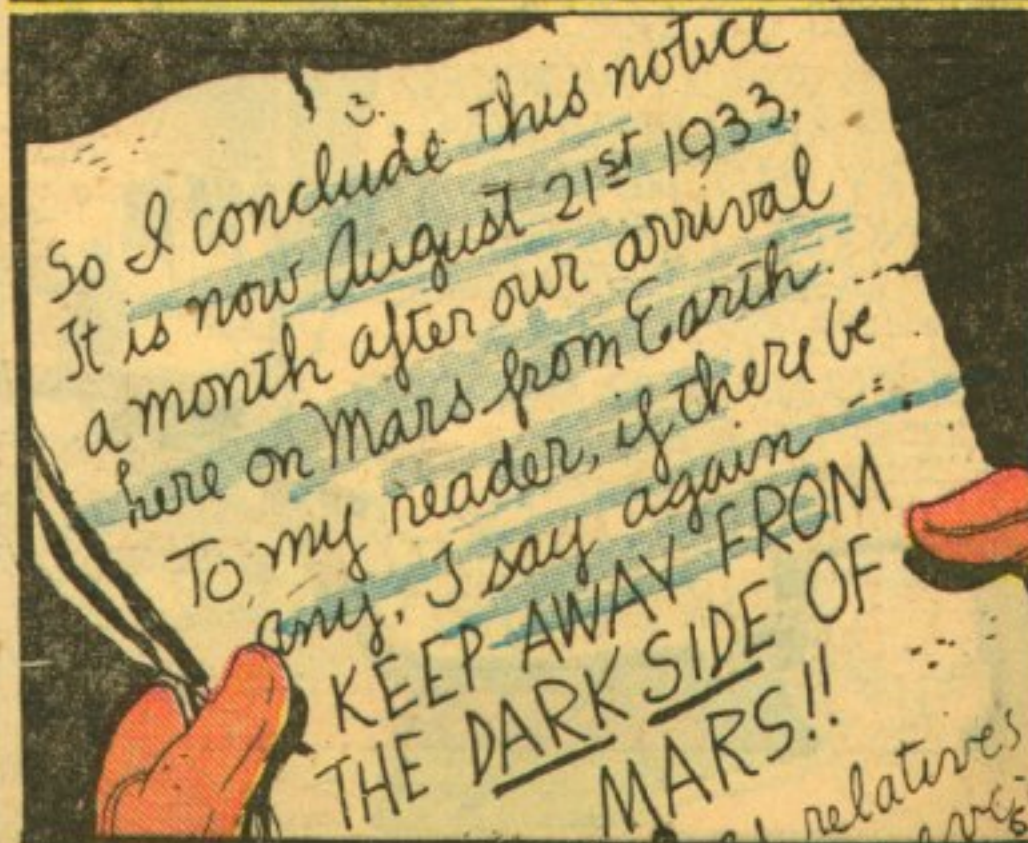 So I conclude this notice
It is now August 21st 1933,
a month after our arrival
here on Mars from Earth.
To my reader, if there be
any, I say again
KEEP AWAY FROM
THE DARK SIDE OF
MARS!!
relatives